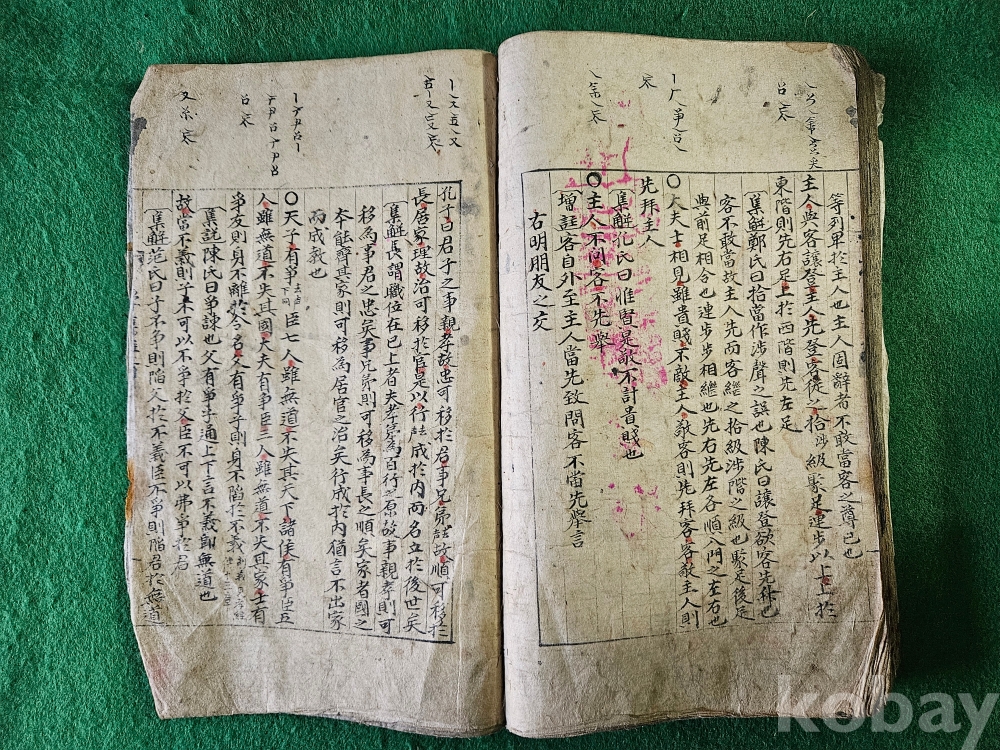 等列卑於主人也主人固辭者不敢當客之尊己也
主人與客讓登主人先登客從之拾涉級聚足連步以上上於
東階則先右足上於西階則先左足
集解鄭氏曰拾當作涉聲之誤也陳氏曰讓登欲客先升也
客不敢當故主人先而客繼之拾級涉階之級也聚足後足
與前足相合也連步步相繼也先右先左各順入門之左右也
○大夫士相見雖貴賤不敵主人敬客則先拜客客敬主人則
先拜主人
集解孔氏曰惟賢是敬不計貴賤也
○主人不問客不先舉
增註客自外至主人當先致問客不當先舉言
右明朋友之交
孔子曰君子之事親孝故忠可移於君事兄弟故順可移於
長居家理故治可移於官是以行成於内而名立於後世矣
集解長謂職位在已上者夫孝爲百行之原故事親孝則可
移為事君之忠矣事兄弟則可移為事長之順矣家者國之
本能齊其家則可移為居官之治矣行成於内猶言不出家
而成教也
○天子有爭去声下同臣七人雖無道不失其天下諸侯有爭臣五
人雖無道不失其國大夫有爭臣三人雖無道不失其家士有
爭友則身不離於令名父有爭子則身不陷於不義
集註陳氏曰爭諫也父有爭子通上下言不義卽無道也
故當不義則子不可以不爭於父臣不可以弗爭於君
集解范氏曰子不爭則陷人於不義臣不爭則陷君於無道
kobay